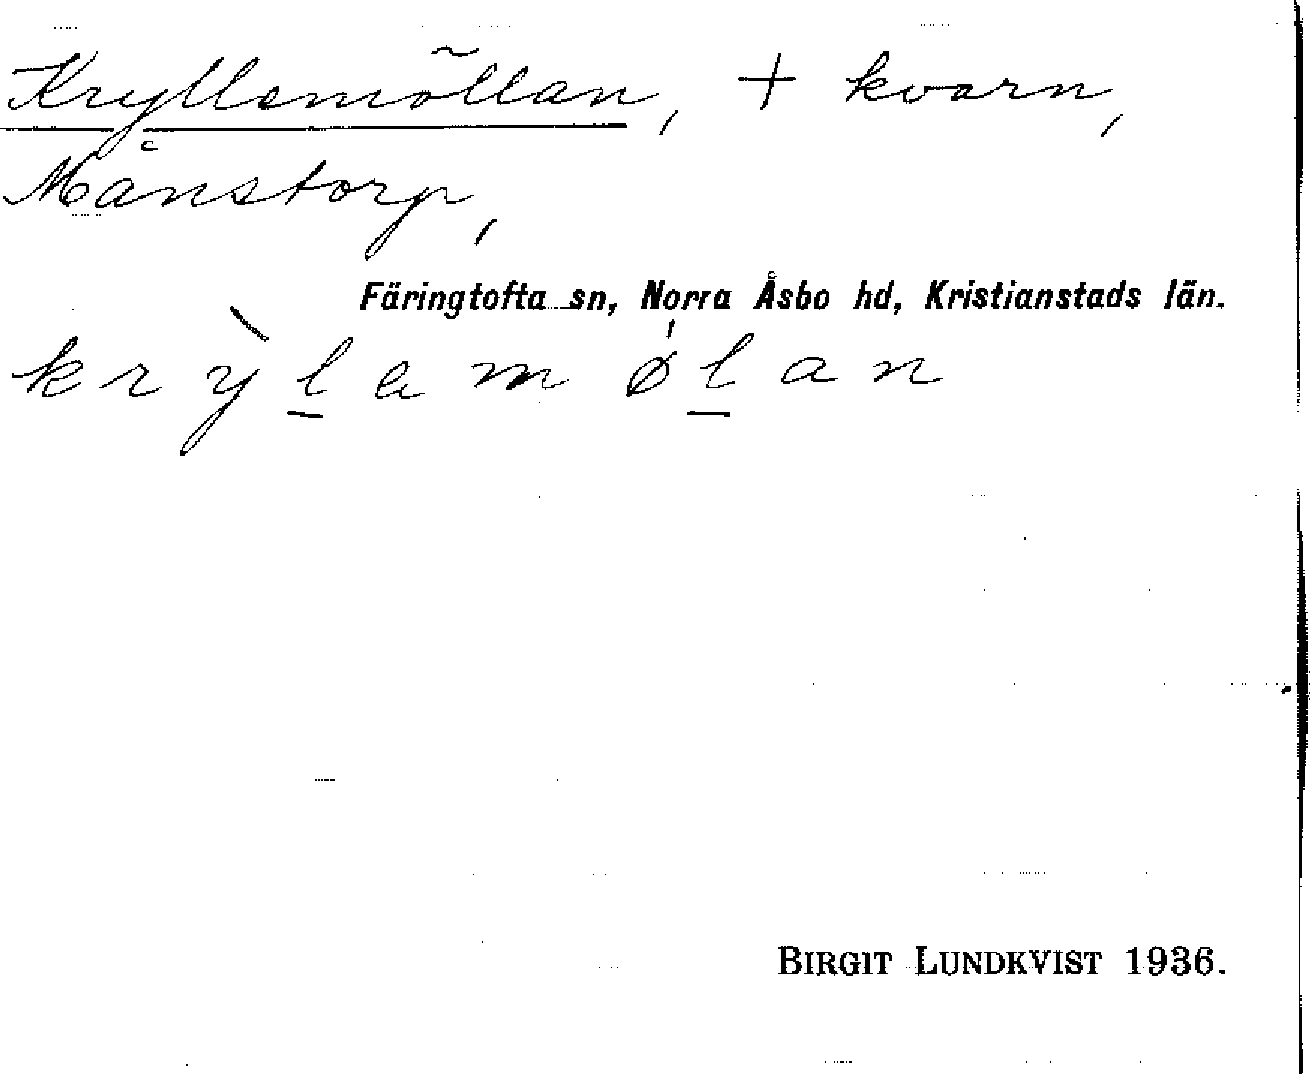 Kryllemöllan, + kvarn,
Månstorp,
Färingtofta sn, Norra Åsbo hd, Kristianstads län.
krỳl̲amǿl̲an
BIRGIT LUNDKVIST 1936.